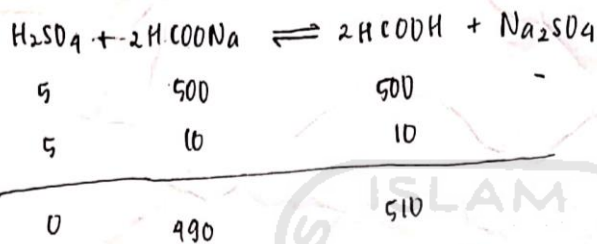 H₂SO₄ + 2HCOONa ⇌ 2HCOOH + Na₂SO₄
5 500 500 -
5 10 10
0 490 510
ISLAM